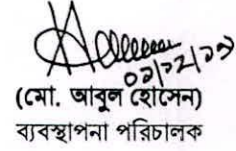 ০১/১২/১৩
(মো. আবুল হোসেন)
ব্যবস্থাপনা পরিচালক